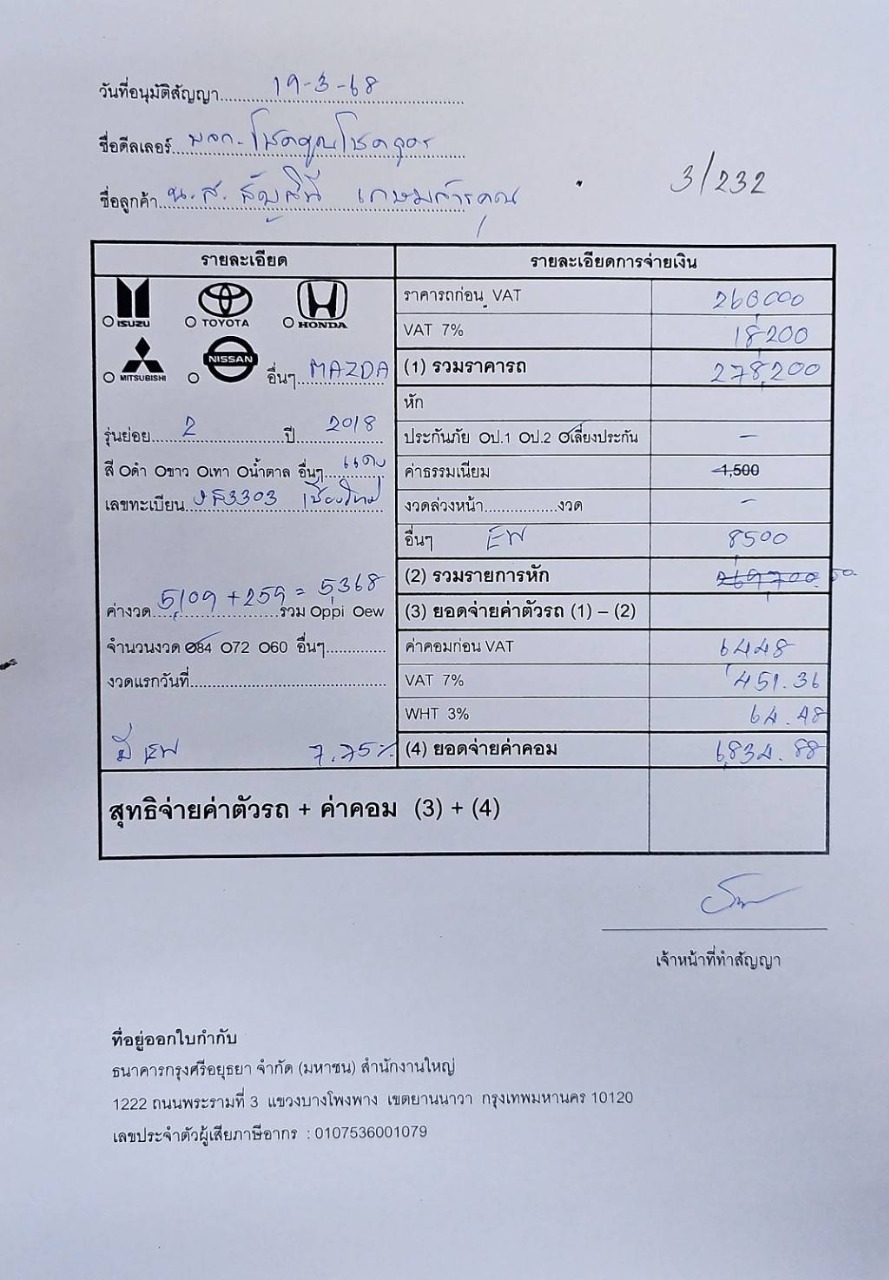 วันที่อนุมัติสัญญา 19-3-68
ชื่อดีลเลอร์ หจก. โชคคูณโชค
ชื่อลูกค้า น.ส.
3/232
รายละเอียด
รายละเอียดการจ่ายเงิน
ISUZU TOYOTA HONDA
ราคารถก่อน VAT 260000
VAT 7% 18200
MITSUBISHI NISSAN อื่นๆ MAZDA
(1) รวมราคารถ 278,200
หัก
รุ่นย่อย 2 ปี 2018
ประกันภัย Oป.1 Oป.2 Oเลี่ยงประกัน -
สี Oดำ Oขาว Oเทา Oน้ำตาล อื่นๆ แดง
ค่าธรรมเนียม 1,500
เลขทะเบียน 3303 เชียงใหม่
งวดล่วงหน้า.................งวด -
อื่นๆ EW 8500
(2) รวมรายการหัก 269,700.00
ค่างวด 5,109 + 259 = 5,368 รวม Oppi Oew
(3) ยอดจ่ายค่าตัวรถ (1) – (2)
จำนวนงวด O84 O72 O60 อื่นๆ..............
ค่าคอมก่อน VAT 6448
งวดแรกวันที่
VAT 7% 451.36
WHT 3% 64.48
มี EW 7.75%
(4) ยอดจ่ายค่าคอม 6,834.88
สุทธิจ่ายค่าตัวรถ + ค่าคอม (3) + (4)
เจ้าหน้าที่ทำสัญญา
ที่อยู่ออกใบกำกับ
ธนาคารกรุงศรีอยุธยา จำกัด (มหาชน) สำนักงานใหญ่
1222 ถนนพระรามที่ 3 แขวงบางโพงพาง เขตยานนาวา กรุงเทพมหานคร 10120
เลขประจำตัวผู้เสียภาษีอากร : 0107536001079